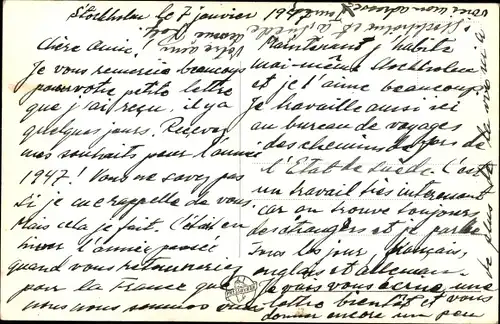 Stockholm le 7 janvier 1947
Chère Amie!
Je vous remercie beaucoup
pour votre petite lettre
que j'ai reçu, il y a
quelques jours. Recevez
mes souhaits pour l'année
1947! Vous ne savez pas
si je me rappelle de vous.
Mais cela je fait. C'était en
hiver l'année passée
quand vous retourneriez
pour la France que
nous nous sommes vus
Maintenant j'habite
moi-même Stockholm
et je l'aime beaucoup.
Je travaille aussi ici
au bureau de voyages
des chemins de fer de
l'Etat de Suède. C'est
un travail très intéressant
car on trouve toujours
des étrangers et je parle
tous les jours français,
anglais et allemand.
Je vais vous écrire une
lettre bientôt et vous
donner encore un peu
de plus de
Stockholm et la Suède
Votre amie
voici mon adresse